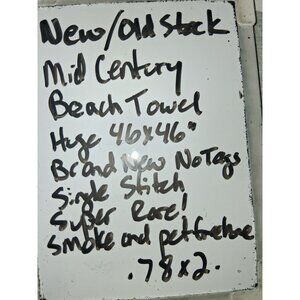 New/Old Stock
Mid Century
Beach Towel
Huge 46x46"
Brand New No Tags
Single Stitch
Super Rare!
Smoke and pet free home
.78x2.